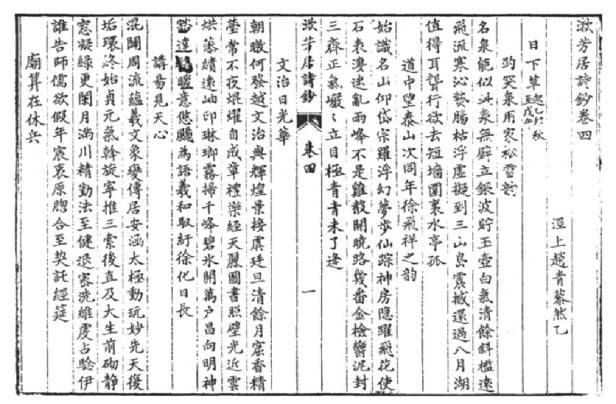 潄芳居詩鈔卷四
涇上趙青藜然乙
日下草
趵突泉用家松雪韻
名泉能似此泉無辟立銀波貯玉壺白氣清餘斜檻遠
飛流寒沁熱腸枯浮虛擬到三山島震撼還過八月湖
值得耳聾行欲去短墻圍裏水亭孤
道中望泰山次同年徐飛祥之韻
始識名山仰岱宗羅浮幻夢步仙踪神房隱躍飛花使
石表澳迷亂雨峰不是雞聲開曉路幾番金檢響泥封
三齊正氣巖巖立目極青青未了逢
潄芳居詩鈔 卷四 一
文治日光華
朝暾何發越文治與輝煌景接虞廷旦清餘月窟香精
薹常不夜焜燿自成章禮樂經天麗圖書照壁光近雲
烘藻繢遠岫印琳瑯霧掃千峰碧氷開萬戶昌向明神
暄意悠颺為語羲和馭紆徐化日長
講易見天心
混闢周流蘊義文象變傳居安涵太極動玩妙先天復
垢環終始貞元氣斡旋寧推三索後直及大生前砌靜
窓凝綠更闌月滿川精勤法至健退密洗維虔占驗伊
誰告師儒欲假年宸衷原脗合至契託經筵
廟算在休兵